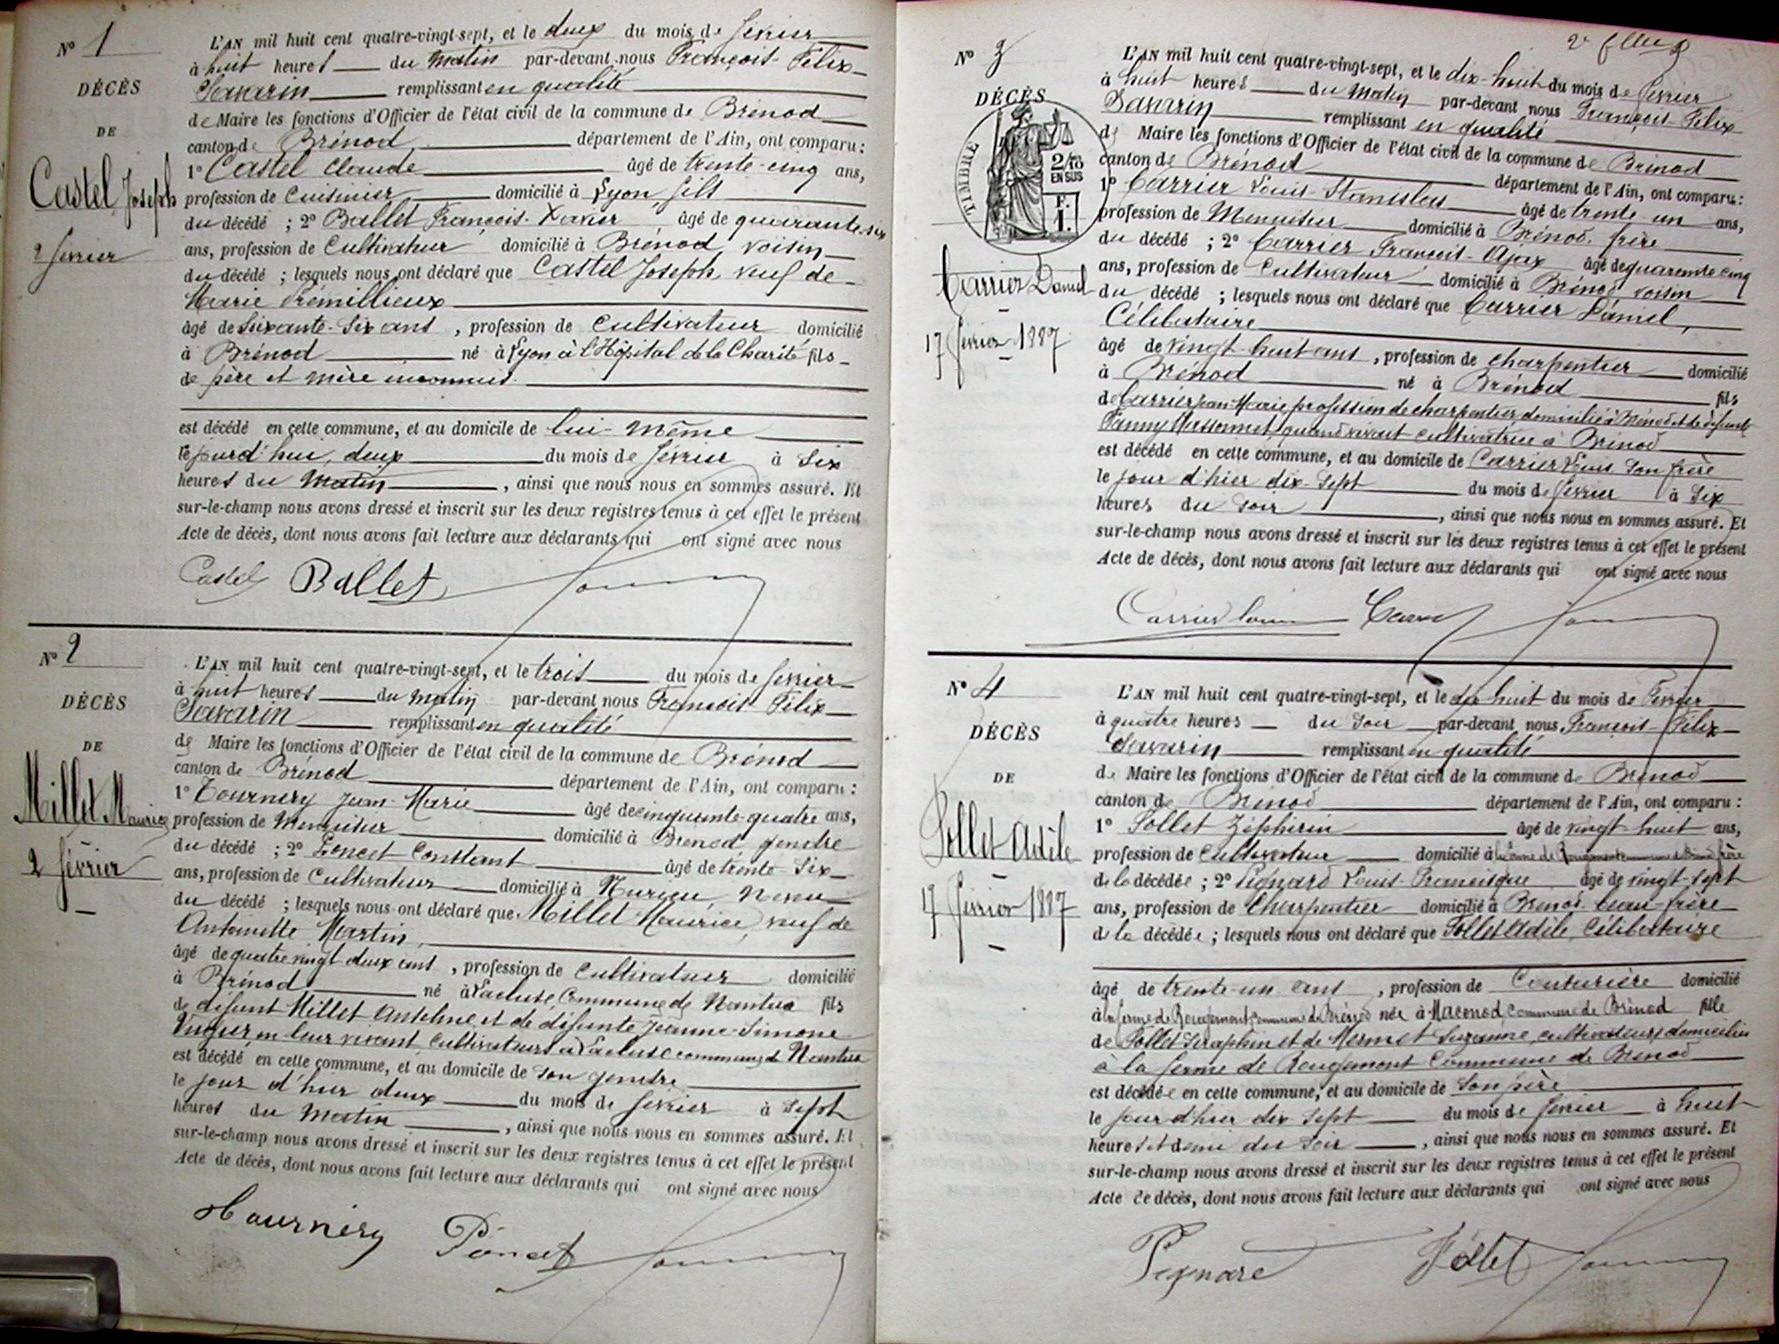 N° 1
DÉCÈS
DE
Castel Joseph
2 février
L'AN mil huit cent quatre-vingt-sept, et le deux du mois de février
à huit heures du matin par-devant nous François-Félix
Savarin remplissant en qualité
de Maire les fonctions d'Officier de l'état civil de la commune de Brénod
canton de Brénod département de l'Ain, ont comparu :
1° Castel Claude âgé de trente-cinq ans,
profession de Cuisinier domicilié à Lyon fils
du décédé ; 2° Ballet François-Xavier âgé de quarante-six
ans, profession de Cultivateur domicilié à Brénod voisin
du décédé ; lesquels nous ont déclaré que Castel Joseph veuf de
Marie Prémillieux
âgé de soixante-six ans, profession de Cultivateur domicilié
à Brénod né à Lyon à l'Hôpital de la Charité fils
de père et mère inconnus
est décédé en cette commune, et au domicile de lui-même
le jourd'hui, deux du mois de février à six
heures du matin, ainsi que nous nous en sommes assuré. Et
sur-le-champ nous avons dressé et inscrit sur les deux registres tenus à cet effet le présent
Acte de décès, dont nous avons fait lecture aux déclarants qui ont signé avec nous
Castel Ballet
N° 2
DÉCÈS
DE
Millet Maurice
2 février
L'AN mil huit cent quatre-vingt-sept, et le trois du mois de février
à huit heures du matin par-devant nous François Félix
Savarin remplissant en qualité
de Maire les fonctions d'Officier de l'état civil de la commune de Brénod
canton de Brénod département de l'Ain, ont comparu :
1° Tournery Jean-Marie âgé de cinquante-quatre ans,
profession de Menuisier domicilié à Brénod gendre
du décédé ; 2° Poncet Constant âgé de trente-six
ans, profession de Cultivateur domicilié à neveu
du décédé ; lesquels nous ont déclaré que Millet Maurice veuf de
Antoinette Martin,
âgé de quatre vingt deux ans, profession de Cultivateur domicilié
à Brénod né à Lacluse Commune de Nantua fils
de défunt Millet Anselme et de défunte Jeanne-Simone
en leur vivant Cultivateurs à Lacluse commune de Nantua
est décédé en cette commune, et au domicile de son gendre
le jour d'hier deux du mois de février à sept
heures du matin, ainsi que nous nous en sommes assuré. Et
sur-le-champ nous avons dressé et inscrit sur les deux registres tenus à cet effet le présent
Acte de décès, dont nous avons fait lecture aux déclarants qui ont signé avec nous
Tournéry Poncet
N° 3
DÉCÈS
TIMBRE
2/10
EN SUS
F.
1.
Carrier Daniel
17 février 1887
L'AN mil huit cent quatre-vingt-sept, et le dix-huit du mois de février
à huit heures du matin par-devant nous François-Félix
Savarin remplissant en qualité
de Maire les fonctions d'Officier de l'état civil de la commune de Brénod
canton de Brénod département de l'Ain, ont comparu :
1° Carrier Louis Stanislas âgé de trente-un ans,
profession de Menuisier domicilié à Brénod, frère
du décédé ; 2° Carrier François-Ajax âgé de quarante cinq
ans, profession de Cultivateur domicilié à Brénod voisin
du décédé ; lesquels nous ont déclaré que Carrier Daniel,
Célibataire
âgé de vingt-huit ans, profession de charpentier domicilié
à Brénod né à Brénod fils
de Carrier Jean-Marie profession de charpentier domicilié à Brénod et de défunte
Fanny Messonnet, quand vivait cultivatrice à Brénod
est décédé en cette commune, et au domicile de Carrier Louis son frère
le jour d'hier dix-sept du mois de février à six
heures du soir, ainsi que nous nous en sommes assuré. Et
sur-le-champ nous avons dressé et inscrit sur les deux registres tenus à cet effet le présent
Acte de décès, dont nous avons fait lecture aux déclarants qui ont signé avec nous
Carrier Louis
N° 4
DÉCÈS
DE
Sollet Adèle
17 février 1887
L'AN mil huit cent quatre-vingt-sept, et le dix huit du mois de février
à quatre heures du soir par-devant nous François-Félix
Savarin remplissant en qualité
de Maire les fonctions d'Officier de l'état civil de la commune de Brénod
canton de Brénod département de l'Ain, ont comparu :
1° Sollet Zéphirin âgé de vingt-huit ans,
profession de Cultivateur domicilié à la ferme de Rougemont commune de Brénod frère
de la décédée ; 2° Pignard Louis-Francisque âgé de vingt-sept
ans, profession de Charpentier domicilié à Brénod beau-frère
de la décédée ; lesquels nous ont déclaré que Sollet Adèle, Célibataire
âgé de trente-un ans, profession de Couturière domicilié
à la ferme de Rougemont commune de Brénod née à Maconod commune de Brénod fille
de Sollet Séraphin et de Mermet Suzanne, cultivateurs domiciliés
à la ferme de Rougemont Commune de Brénod
est décédée en cette commune, et au domicile de son père
le jour d'hier dix sept du mois de février à huit
heures et demi du soir, ainsi que nous nous en sommes assuré. Et
sur-le-champ nous avons dressé et inscrit sur les deux registres tenus à cet effet le présent
Acte de décès, dont nous avons fait lecture aux déclarants qui ont signé avec nous
Pignard Sollet